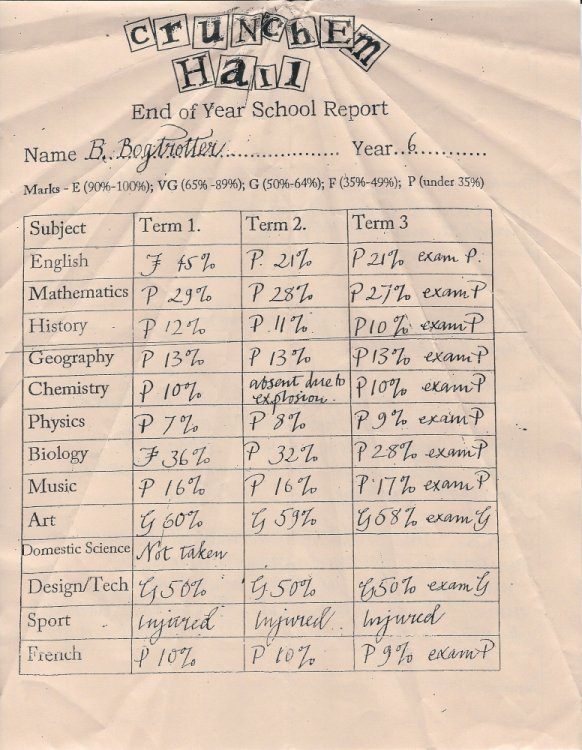 crUNchEm
HaLL
End of Year School Report
Name B. Bogtrotter.................... Year..6...........
Marks - E (90%-100%); VG (65% -89%); G (50%-64%); F (35%-49%); P (under 35%)
Subject Term 1. Term 2. Term 3
English F 45% P. 21% P 21% exam P.
Mathematics P 29% P 28% P 27% exam P
History P 12% P. 11% P10% exam P
Geography P 13% P 13% P13% exam P
Chemistry P 10% absent due to explosion. P10% exam P
Physics P 7% P 8% P 9% exam P.
Biology F 36% P 32% P 28% exam P
Music P 16% P 16% P 17% exam P
Art G 60% G 59% G 58% exam G
Domestic Science Not taken
Design/Tech G 50% G 50% G50% exam G
Sport Injured Injured. Injured
French P 10% P 10% P 9% exam P